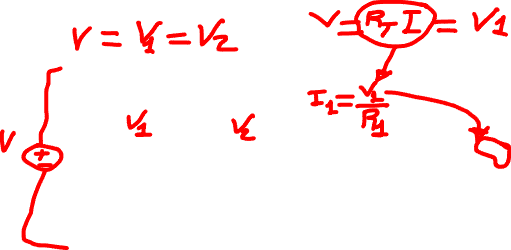 V = V1 = V2
V = RT I = V1
I1 = V1/R1
V1 V2
V + -